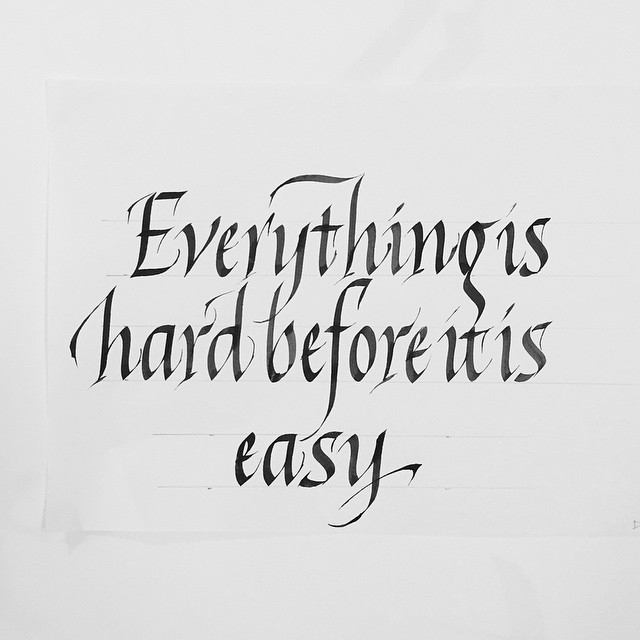 Everything is
hard before it is
easy